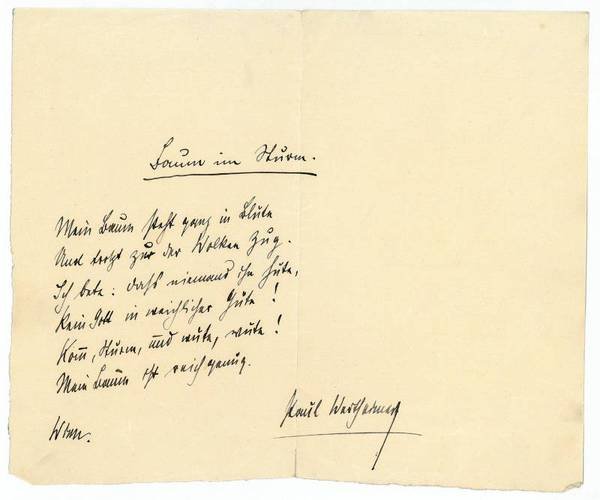 Baum im Sturm.
Mein Baum steht ganz in Blüte
Und trotzt zur der Wolken Zug.
Ich bete: dass niemand ihn hüte,
Kein Gott in weichlicher Güte!
Kom̅, Sturm, und wüte, wüte!
Mein Baum ist reich genug.
Wien.
Paul Wertheimer